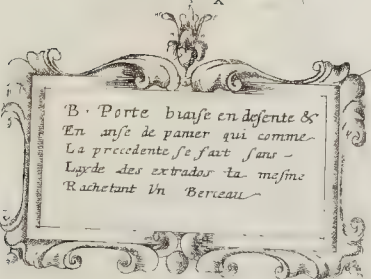 X
B. Porte biaise en desente &
En anse de panier qui comme
La precedente se fait sans
Layde des extrados ta mesme
Rachetant Vn Berceau